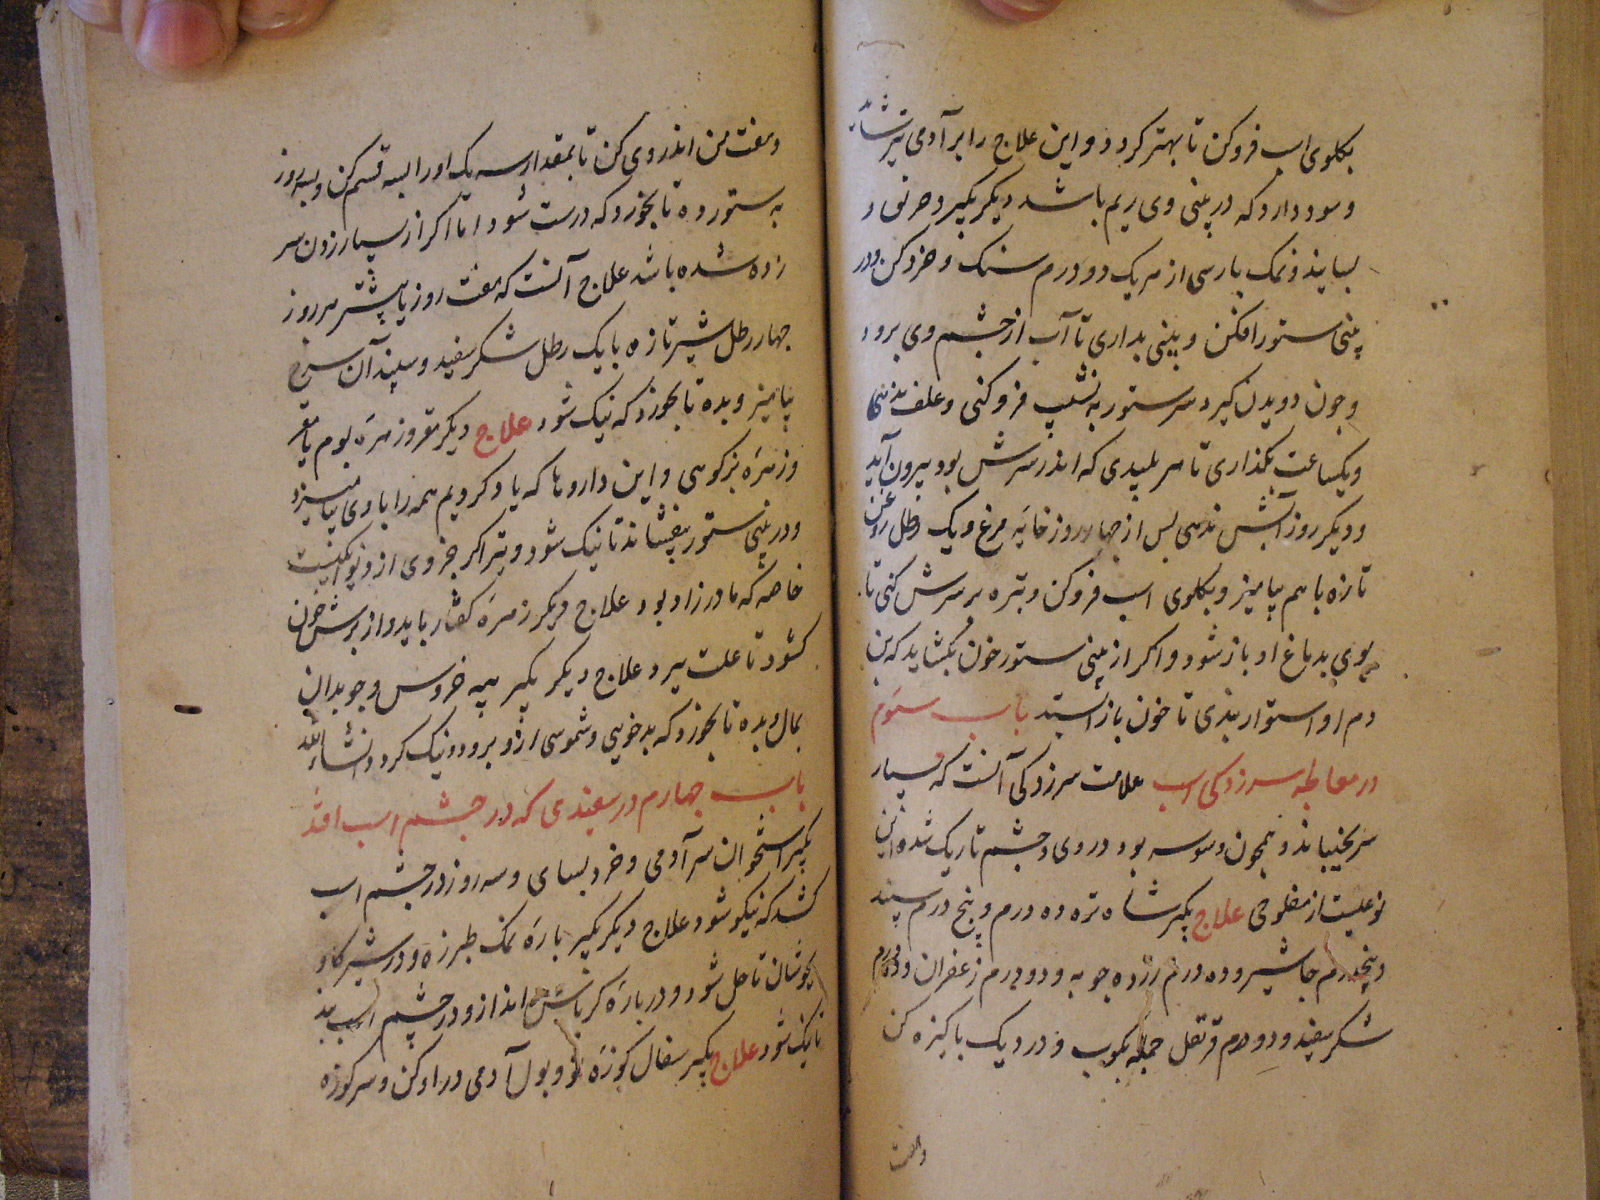 بکلوی اسب فروکن تا بهتر کردد و این علاج را بر آدمی نیز شاید
و سود دارد که در بینی وی ریم باشد دیکر بکیرد خربق و
بساید و نمک پارسی از هر یک دو درم سنک و خرد کن و در
بینی ستور افکن و بینی بداری تا آب از چشم وی برود
و چون دویدن کیرد سر ستور به نشیب فرو کنی و علف ندهی
و یکساعت بکذاری تا هر پلیدی که اندر سرش بود بیرون آید
و دیکر روز آبش ندهی پس از چهار روز خایه مرغ و یک رطل روغن
تازه با هم بیامیز و بکلوی اسب فروکن و بتره بر سرش کنی تا
بوی بدماغ او باز شود و اکر از بینی ستور خون بکشاید که بن
دم او استوار بندی تا خون باز ایستد باب سوم
در معالجه سرزدکی اسب علامت سرزدکی آنست که بسیار
سر بجنباند و همچون وسوسه بود در وی و چشم تاریک شده و این
نوعیست از مفلوجی علاج بکیر شاه تره ده درم و پنج درم سپند
و پنجدرم جاشیر و ده درم زرده چوبه و دو درم زعفران و ده درم
شکر سفید و دو درم قرنفل جمله بکوب و در دیک پاکیزه کن
و هفت
و هفت من اندر وی کن تا بمقدار سه یک اورا بسه قسم کن و بسه روز
به ستور ده تا بخورد که درست شود اما اکر از بسیار زدن سر
زده شده باشد علاج آنست که هفت روز یا بیشتر هر روز
چهار رطل شیر تازه با یک رطل شکر سفید و سپندان سرخ
بیامیز و بده تا بخورد که نیک شود علاج دیکر زهره بوم یا
و زهره بز کوهی و این داروها که یاد کردیم همه را با وی بیامیزد
و در بینی ستور بیفشاند تا نیک شود و بتر اکر جزوی از و نیست
خاصه که مادرزاد بود علاج دیکر زهره کفتار باید و از برش خون
کشود تا علت ببرد علاج دیکر بکیر پیه خروس و جو بدان
بمال و بده تا بخورد که بدخویی و شموسی ازو برود و نیک کردد انشاء الله
باب چهارم در سفیدی که در چشم اسب افتد
بکیر استخوان سر آدمی و خرد بسای و سه روز در چشم اسب
کشد که نیکو شود علاج دیکر بکیر پاره نمک طبرزد و در شیر کاو
بجوشان تا حل شود و در پاره کرباس انداز و در چشم اسب بند
تا نیک شود علاج بکیر سفال کوزه نو و بول آدمی در او کن و سر کوزه